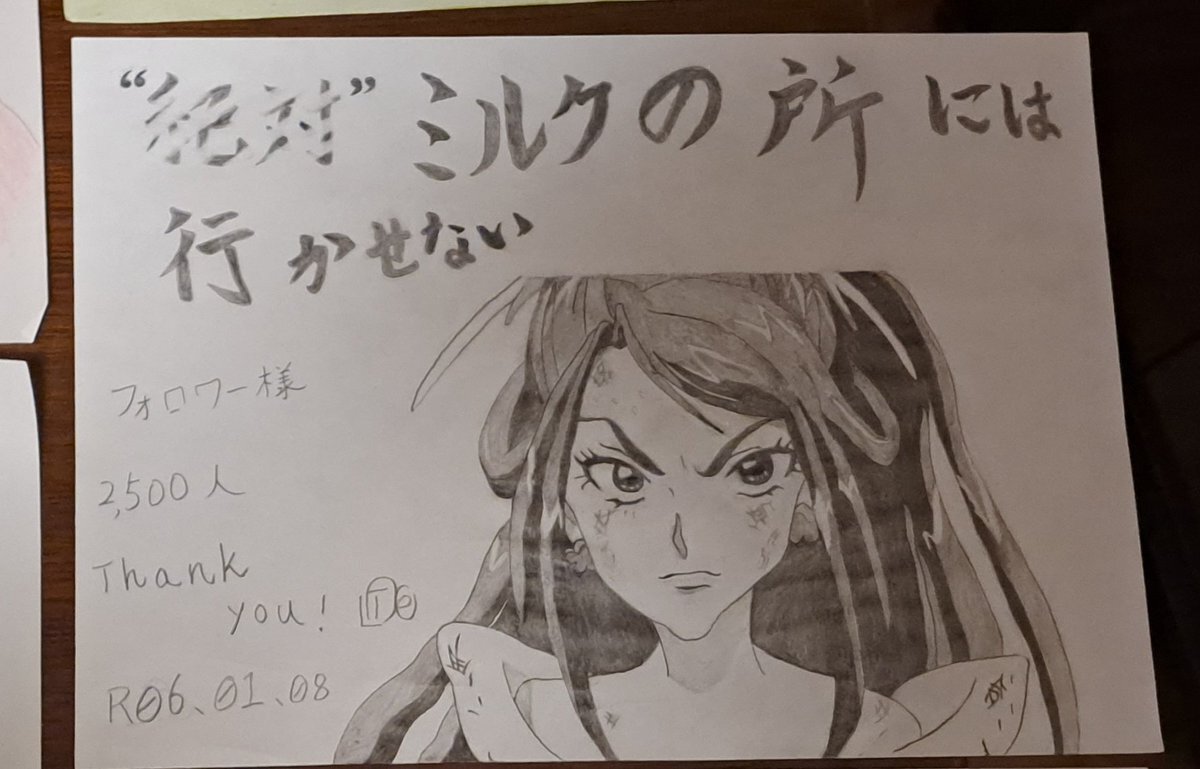 “絶対”ミルクの所には
行かせない
フォロワー様
2,500人
Thank
you!
R06、01、08